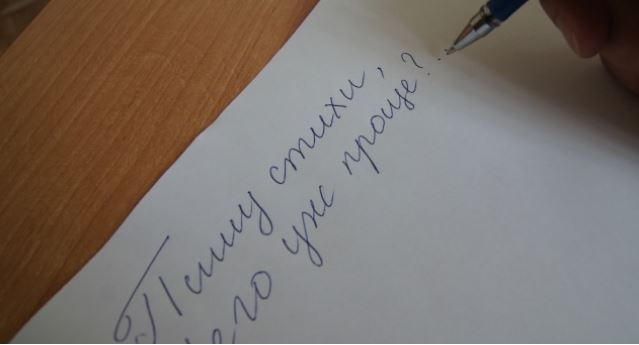 Пишу стихи,
чего уж проще?..